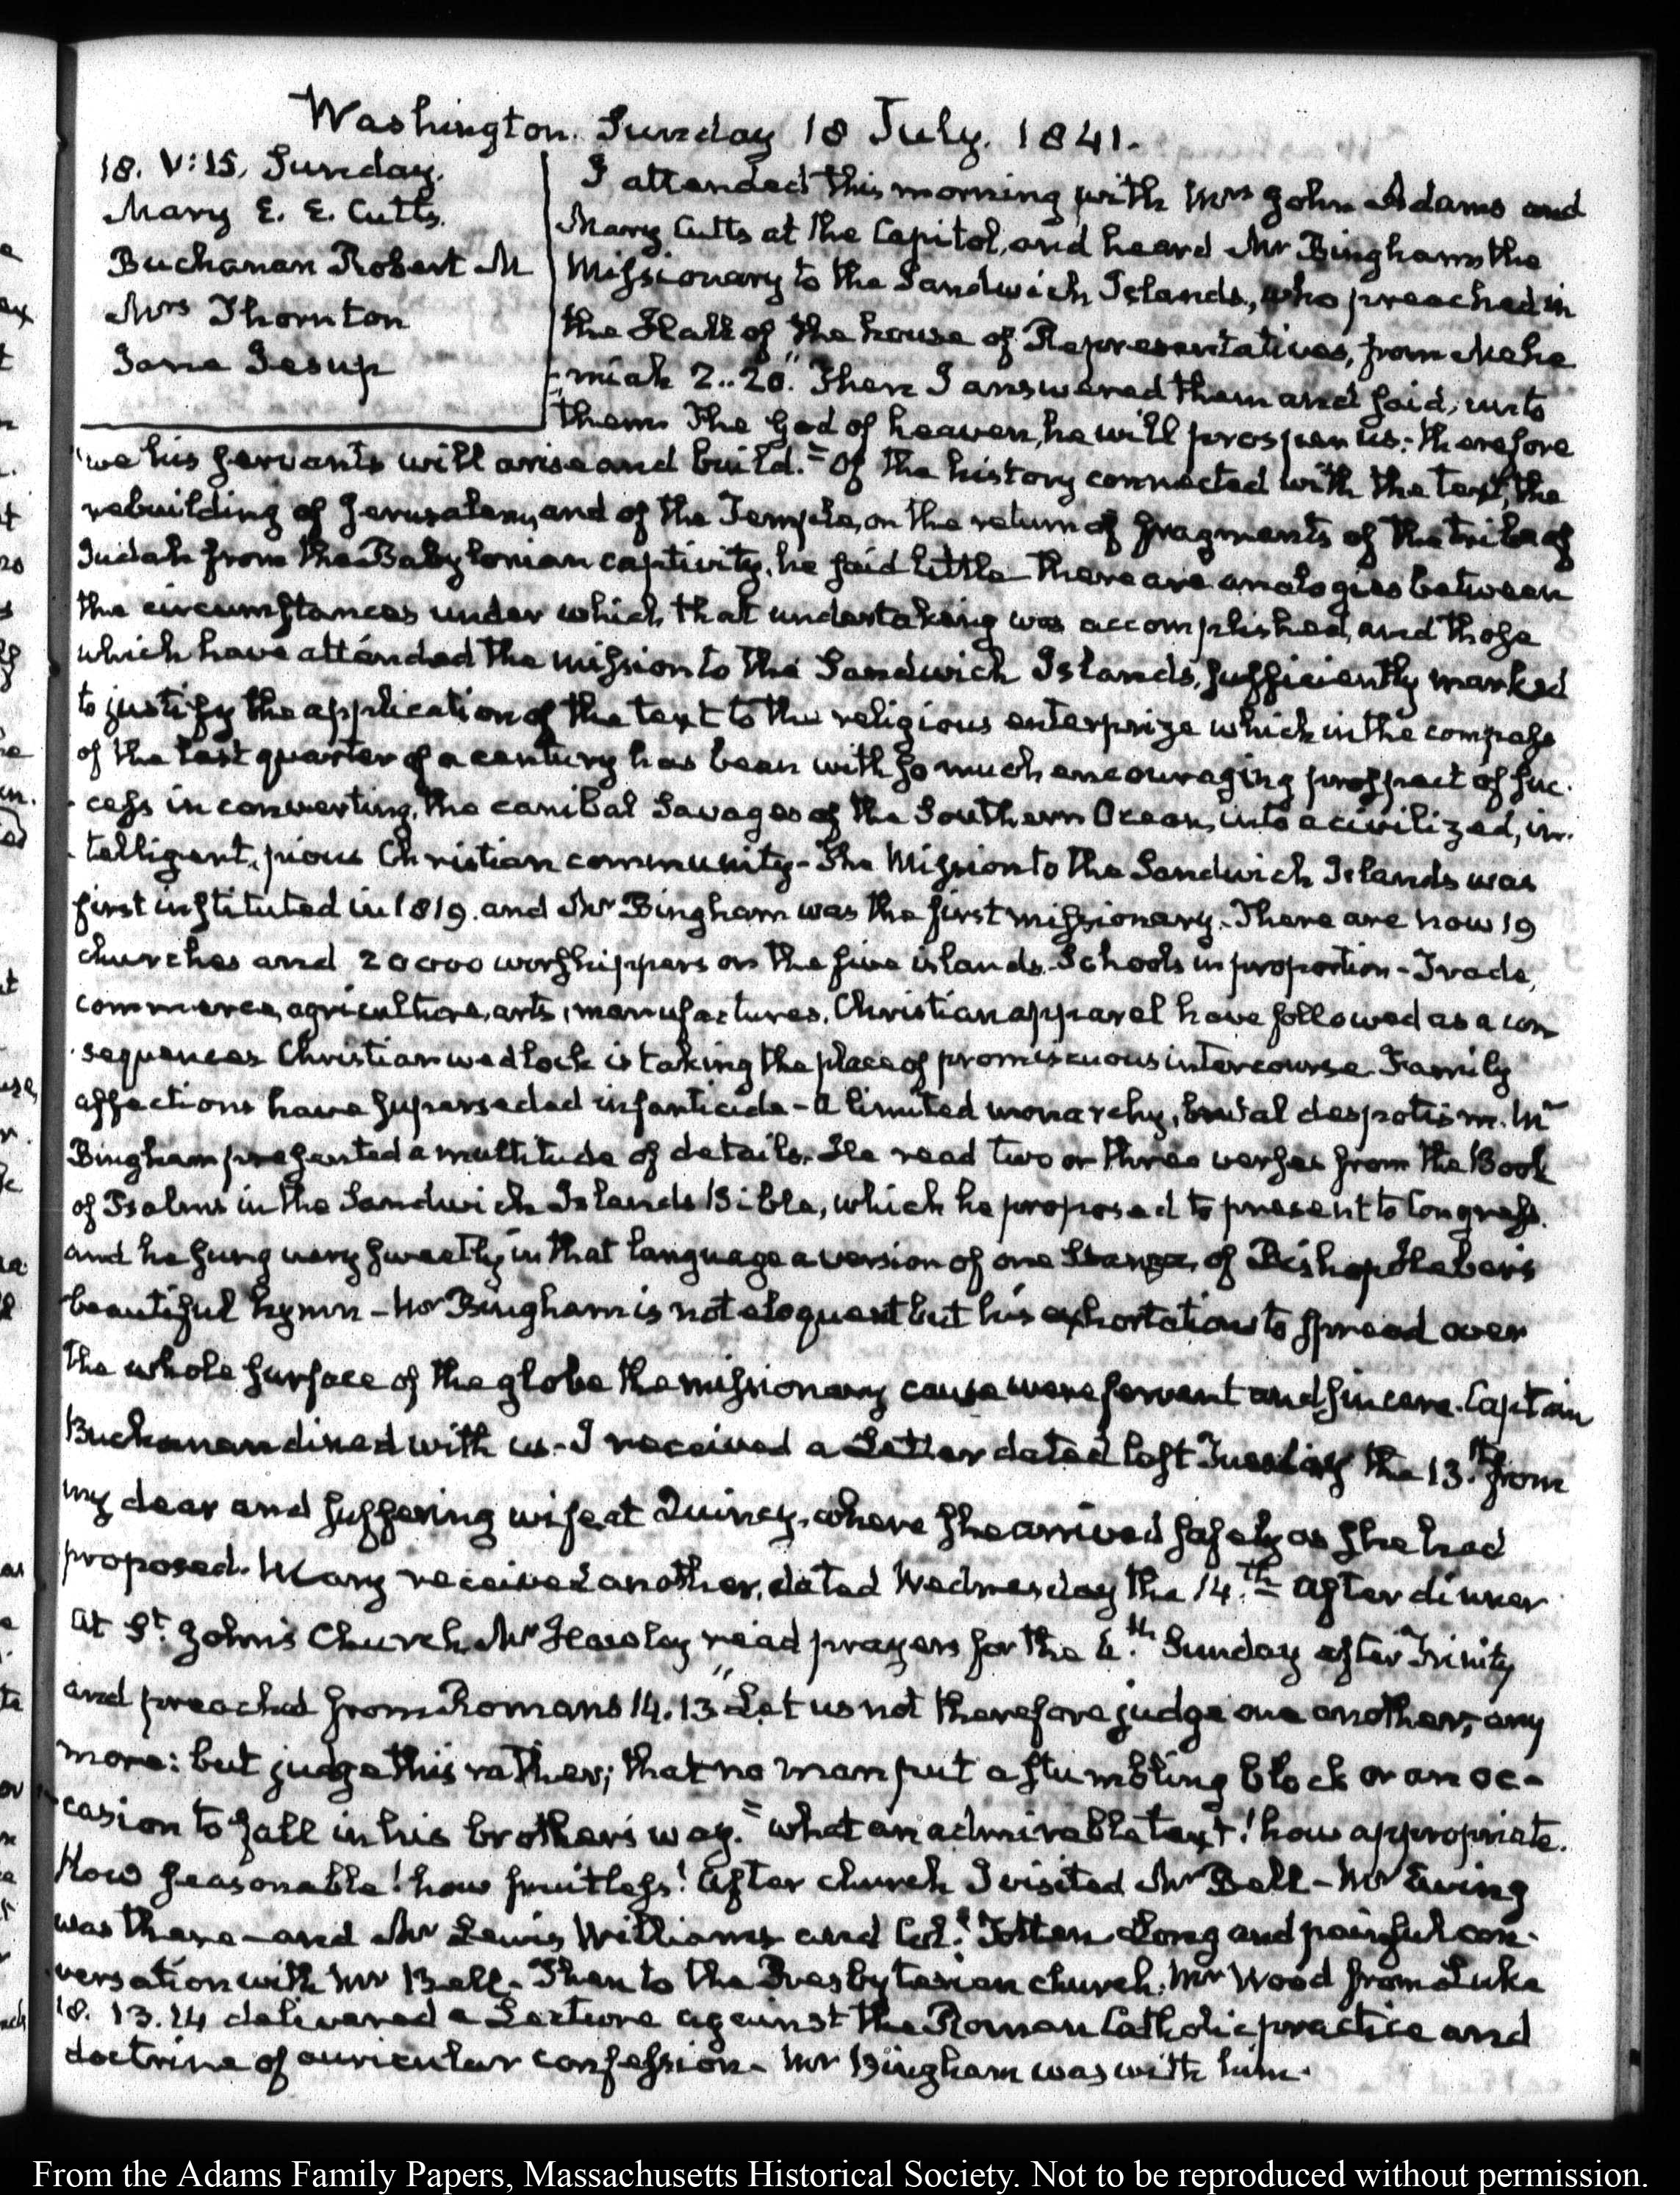 Washington. Sunday 18 July. 1841.
18. V:15. Sunday.
Mary E. E. Cutts.
Buchanan Robert M
Mrs Thornton
Jane Jesup
I attended this morning with Mrs John Adams and
Mary Cutts at the Capitol, and heard Mr Bingham the
Missionary to the Sandwich Islands, who preached in
the Hall of the house of Representatives, from Nehe
-miah 2..20. "Then I answered them and said, unto
"them The God of heaven, he will prosper us: therefore
"we his servants will arise and build." Of the history connected with the text, the
rebuilding of Jerusalem, and of the Temple, on the return of fragments of the tribe of
Judah from the Babylonian captivity, he said little There are analogies between
the circumstances under which that undertaking was accomplished, and those
which have attended the mission to the Sandwich Islands, sufficiently marked
to justify the application of the text to the religious enterprize which in the compass
of the last quarter of a century has been with so much encouraging prospect of suc-
cess in converting, the canibal Savages of the Southern Ocean, into a civilized, in-
telligent, pious Christian community - The Mission to the Sandwich Islands was
first instituted in 1819. and Mr Bingham was the first missionary. There are now 19
churches and 20000 worshippers on the five islands. Schools in proportion - Trade,
commerce, agriculture, arts, manufactures, Christian apparel have followed as a con
sequences Christian wedlock is taking the place of promiscuous intercourse Family
affections have superseded infanticide - a limited monarchy, brutal despotism. Mr
Bingham presented a multitude of details. He read two or three verses from the Book
of Psalms in the Sandwich Islands Bible, which he proposed to present to Congress.
and he sung very sweetly in that language a version of one Stanza, of Bishop Heber's
beautiful hymn - Mr Bingham is not eloquent but his exhortations to spread over
the whole surface of the globe the missionary cause were fervent and sincere. Captain
Buchanan dined with us - I received a Letter dated last Tuesday the 13.th from
my dear and suffering wife at Quincy, where she arrived safely as she had
proposed. Mary received another, dated Wednesday the 14.th After dinner
at St. John's Church Mr Hawley read prayers for the 6.th Sunday after Trinity
and preached from Romans 14.13 "Let us not therefore judge one another, any
more: but judge this rather; that no man put a stumbling block or an oc-
casion to fall in his brother's way." What an admirable text! how appropriate.
How seasonable! how fruitless! After church I visited Mr Bell - Mr Ewing
was there - and Mr Lewis Williams and Col. Totten Long and painful con-
versation with Mr Bell. Then to the Presbyterian church. Mr Wood from Luke
18. 13.14 delivered a Lecture against the Roman Catholic practice and
doctrine of auricular confession - Mr Bingham was with him.
From the Adams Family Papers, Massachusetts Historical Society. Not to be reproduced without permission.